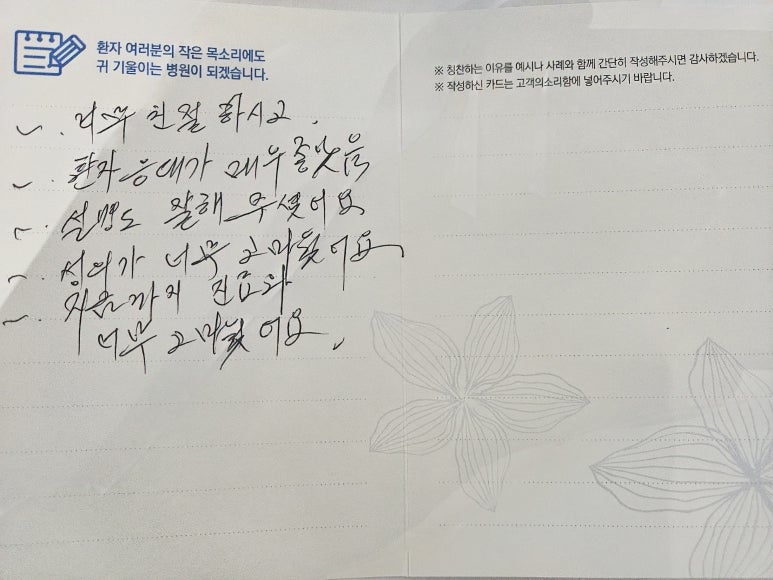 환자 여러분의 작은 목소리에도
귀 기울이는 병원이 되겠습니다.
※ 칭찬하는 이유를 예시나 사례와 함께 간단히 작성해주시면 감사하겠습니다.
※ 작성하신 카드는 고객의소리함에 넣어주시기 바랍니다.
너무 친절 하시고.
환자 응대가 매우 좋았음
설명도 잘해 주셨어요
성의가 너무 고마웠어요
처음까지 진료와
너무 고마웠어요.